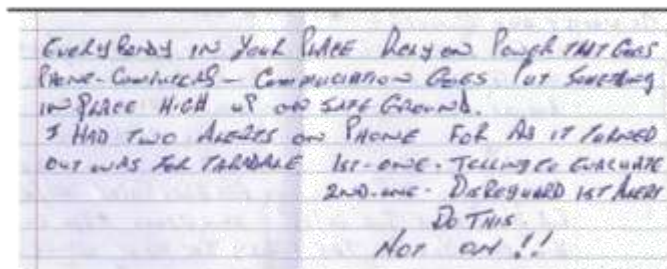 EVERYBODY IN YOUR PLACE RELY ON POWER THAT GOES
PHONE-COMPUTERS - COMMUNICIATION GOES PUT SOMETHING
IN PLACE HIGH UP ON SAFE GROUND.
I HAD TWO ALERTS ON PHONE FOR AS IT TURNED
OUT WAS FOR TARADALE 1ST-ONE-TELLING TO EVACUATE
2ND-ONE- DISREGUARD 1ST ALERT
DO THIS.
NOT ON !!